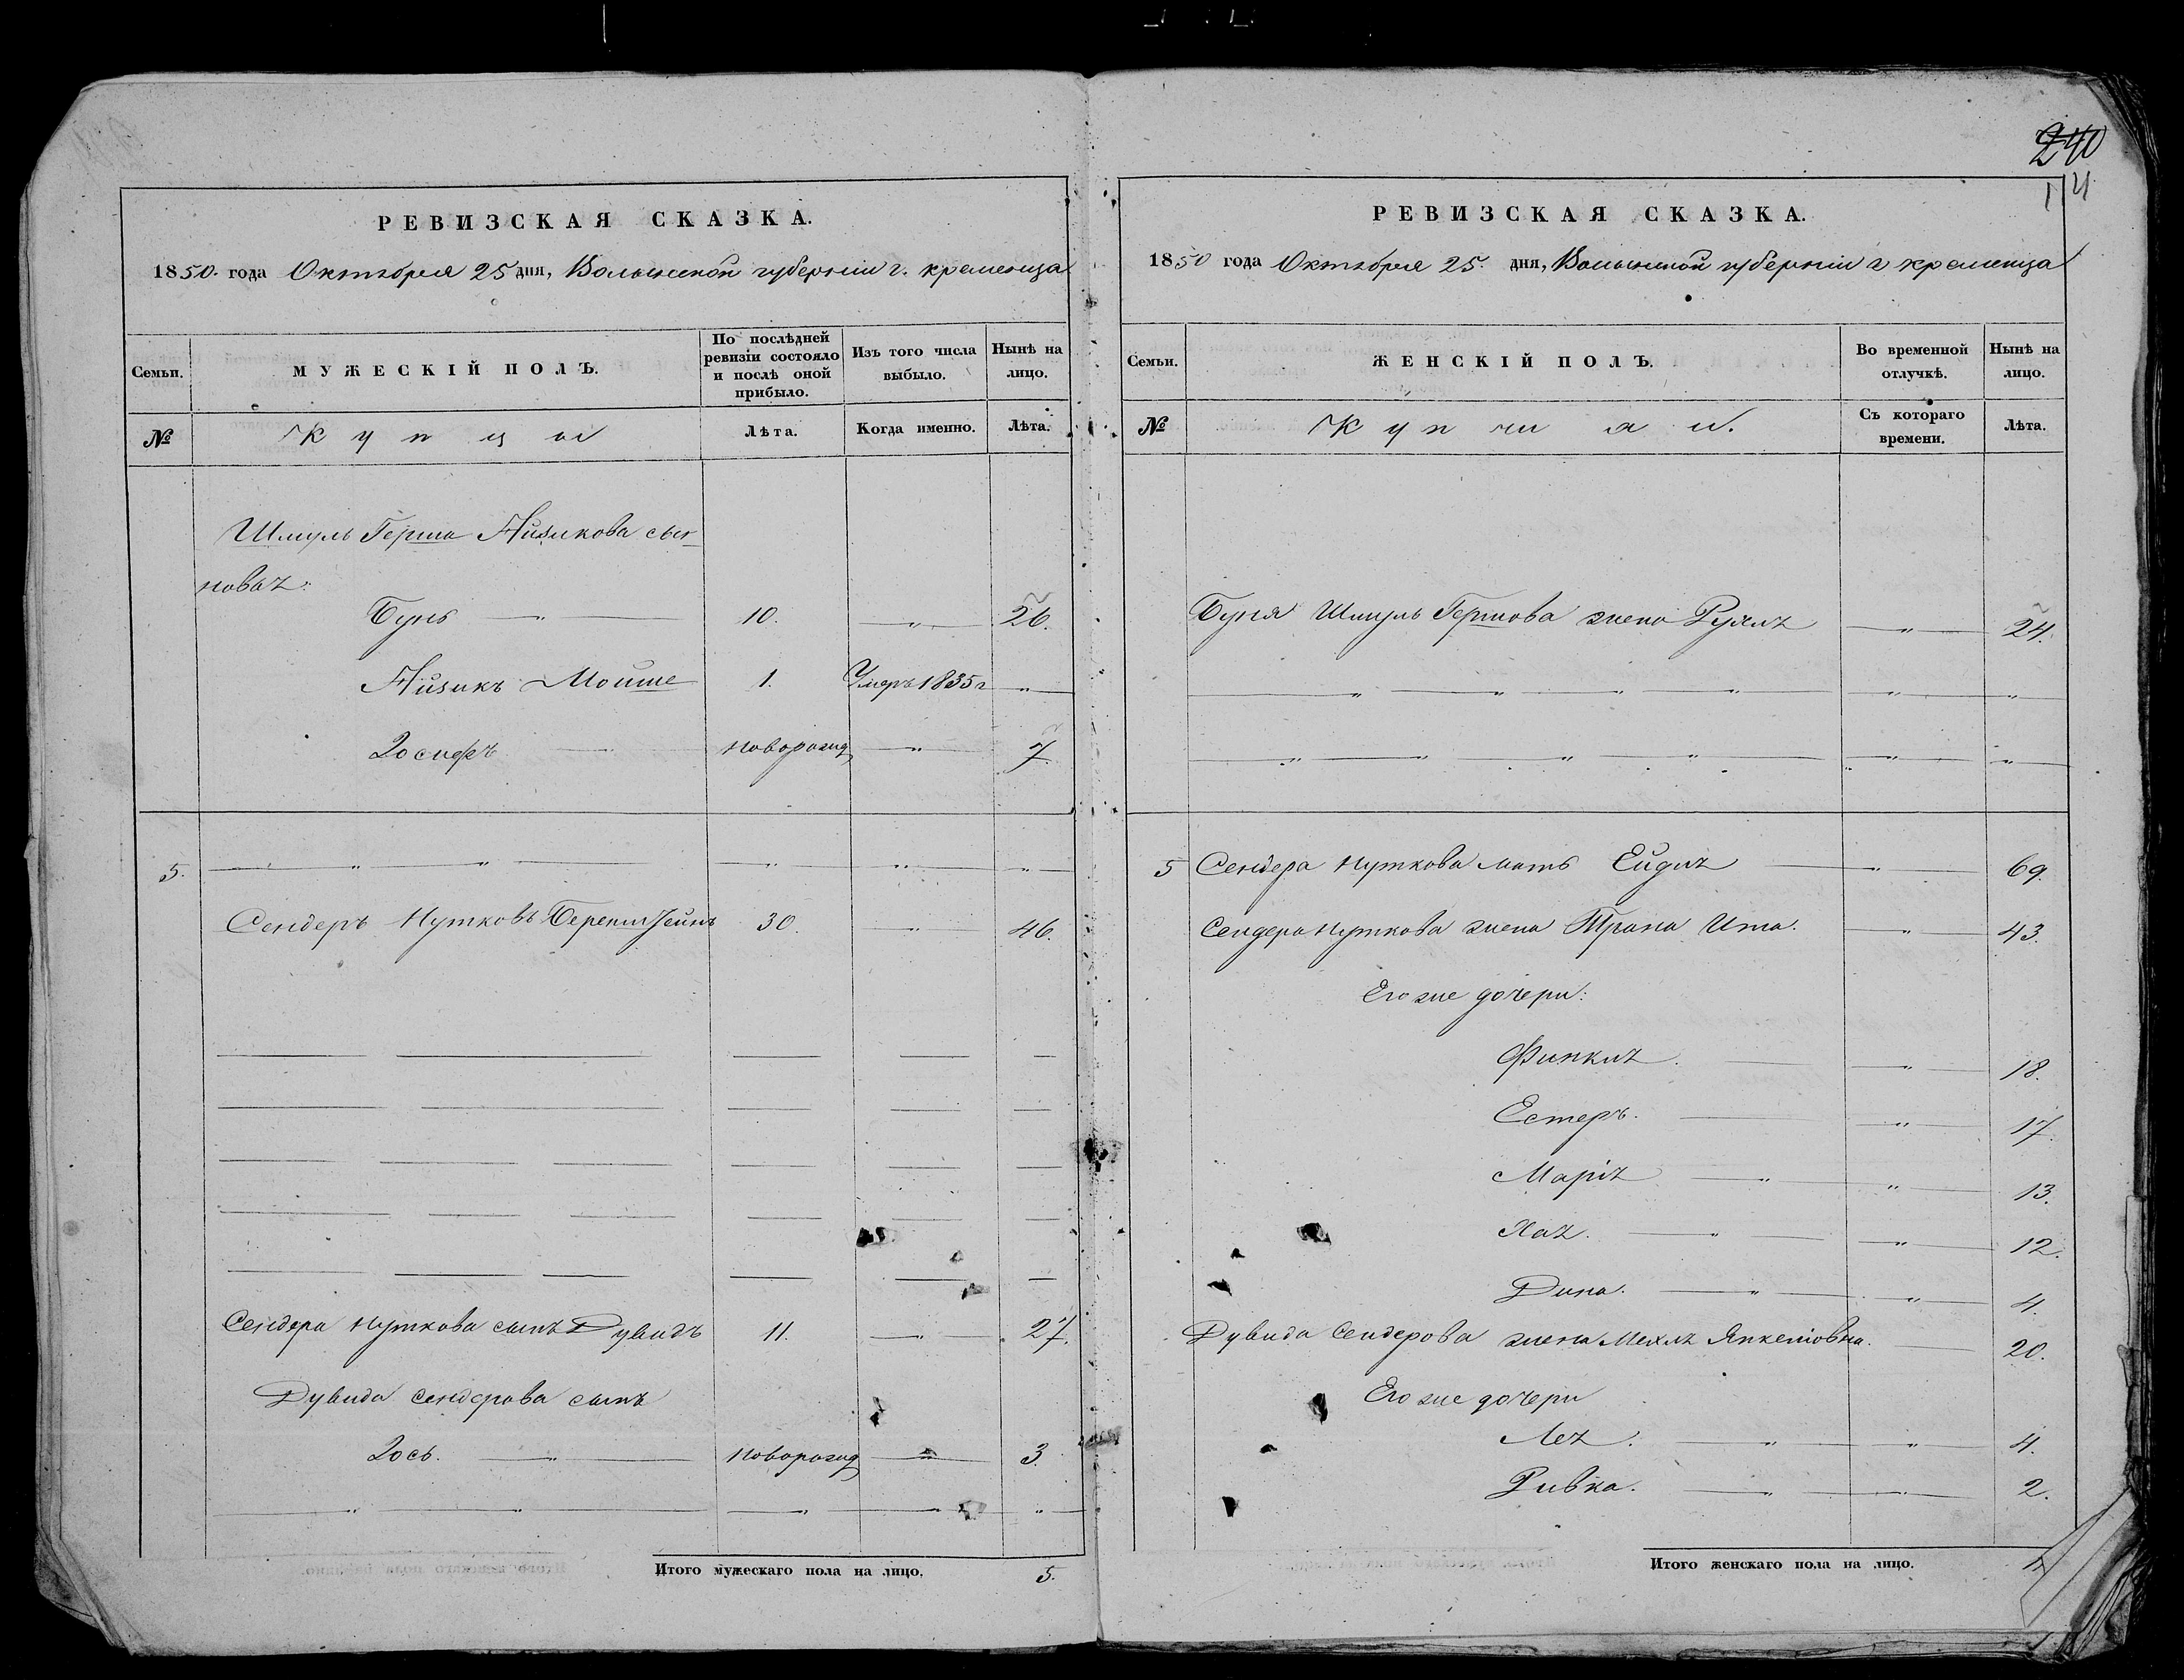 240
114
РЕВИЗСКАЯ СКАЗКА.
1850. года Октября 25 дня, Волынской губерніи г. кременца
Семьи.
МУЖЕСКІЙ ПОЛЪ.
По послѣдней ревизіи состояло и послѣ оной прибыло.
Изъ того числа выбыло.
Нынѣ на лицо.
№
Купцы
Лѣта.
Когда именно.
Лѣта.
Шмуль Герша Айзикова сы-
новья:
Бунь — " — 10. — " — 26.
Айзикъ Мойше 1. Умеръ 1835 г — " —
Іосифъ — новорожд — " — 7.
5. — " — " — " — " — " —
Сендеръ Нутковъ 30. — " — 46.
Сендера Нуткова сынъ Дувидъ 11. — " — 27.
Дувида Сендерова сынъ
Іось. — " — новорожд — " — 3.
— " — " — " — " — " —
Итого мужескаго пола на лицо. 5.
РЕВИЗСКАЯ СКАЗКА.
1850 года Октября 25. дня, Волынской губерніи г кременца
Семьи.
ЖЕНСКІЙ ПОЛЪ.
Во временной отлучкѣ.
Нынѣ на лицо.
№
Купчихи.
Съ котораго времени.
Лѣта.
Буня Шмуль Гершова жена Рухля — " — 24.
— " — " — " — " — " — " —
— " — " — " — " — " — " —
5 Сендера Нуткова мать Ейдля — " — 69.
Сендера Нуткова жена Трана Ита. — " — 43.
Его же дочери:
Финкля. — " — 18.
Естеръ. — " — 17.
Марія — " — " — 13.
Хая. — " — " — 12.
Дина. — " — " — 4.
Дувида Сендерова жена Мехля Янкелювна. — 20.
Его же дочери
Лея. — " — " — 4.
Ривка. — " — " — 2.
Итого женскаго пола на лицо.